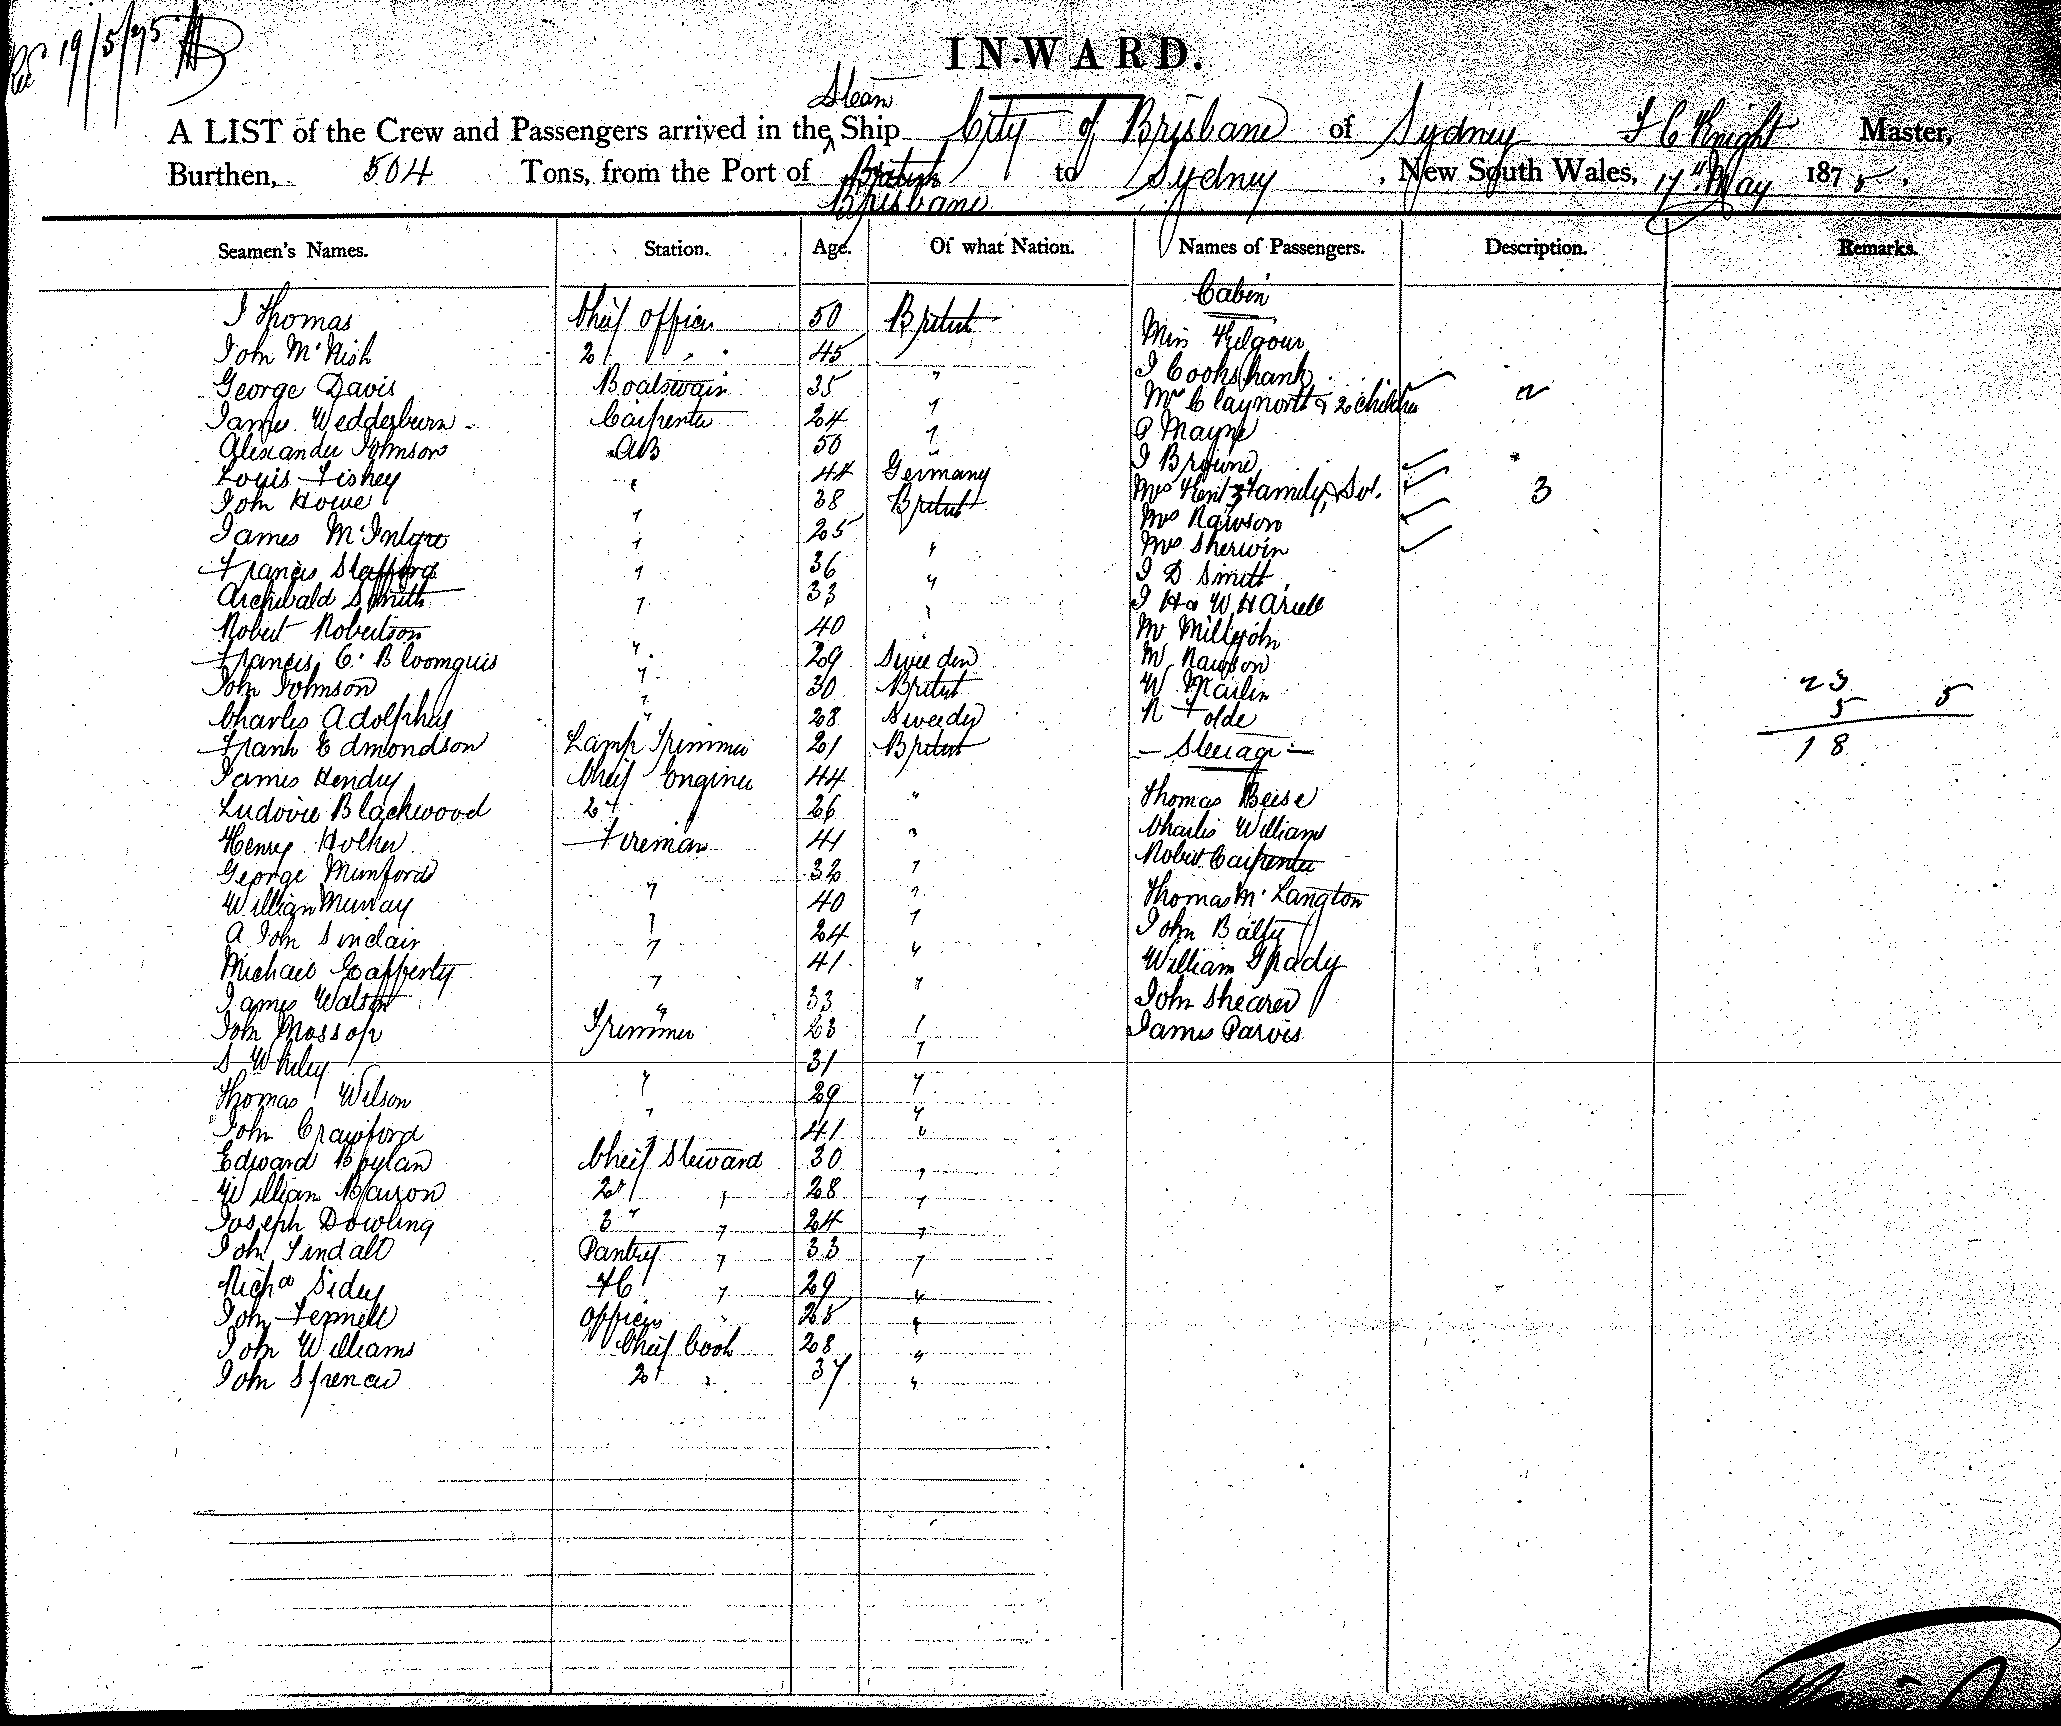 19/5/75
INWARD.
Steam
A LIST of the Crew and Passengers arrived in the Ship City of Brisbane of Sydney F C Knight Master,
Burthen, 504 Tons, from the Port of Brisbane to Sydney, New South Wales, 17th May 1875.
Seamen's Names. Station. Age. Of what Nation. Names of Passengers. Description. Remarks.
Cabin
J Thomas Cheif Officer 50 British
Miss Kilgour
John McNish 2d " 45
J Cookshank
George Davis Boatswain 35 "
Mrs Claynorth & 2 children 2
James Wedderburn Carpenter 24 "
P Mayne
Alexander Johnson AB 50 "
J Browne
Louis Fishey " 44 Germany
Mrs Kent 3 Family & Svt. 3
John Howe " 38 British
Mrs Rawson
James McIntyre " 25 "
Mrs Sherwin
Francis Stafford " 36 "
J D Smith
Archibald Smith " 33 "
J H & W H
Robert Robertson " 40 "
Mr Milljohn
Francis C. Bloomquis " 29 Sweeden
Mr Rawson
John Johnson " 30 British
W Martin
23
Charles Adolphus " 28 Sweeden
R Folde
5 5
Frank Edmondson Lamp Trimmer 21 British
— Steerage —
18
James Hendry Cheif Enginee 44 "
Thomas Beise
Ludovic Blackwood 2d 26 "
Charles Williams
Henry Holker Fireman 41 "
Robert Carpenter
George Mumford " 32 "
Thomas Mc Langton
William Murray " 40 "
John Balty
A John Sinclair " 24 "
William Grady
Michael Gafferty " 41 "
John Shearer
James Watson " 33 "
James Parvis
John Mossop Trimmer 23 "
S W Riley " 31 "
Thomas Wilson " 29 "
John Crawford " 41 "
Edward Boylan Cheif Steward 30 "
William Bairon 2d " 28 "
Joseph Dowling 3d " 24 "
John Tindall Pantry " 33 "
Richd Sidey FC " 29 "
John Fennell Officers " 25 "
John Williams Cheif Cook 28 "
John Spencer 2d " 37 "